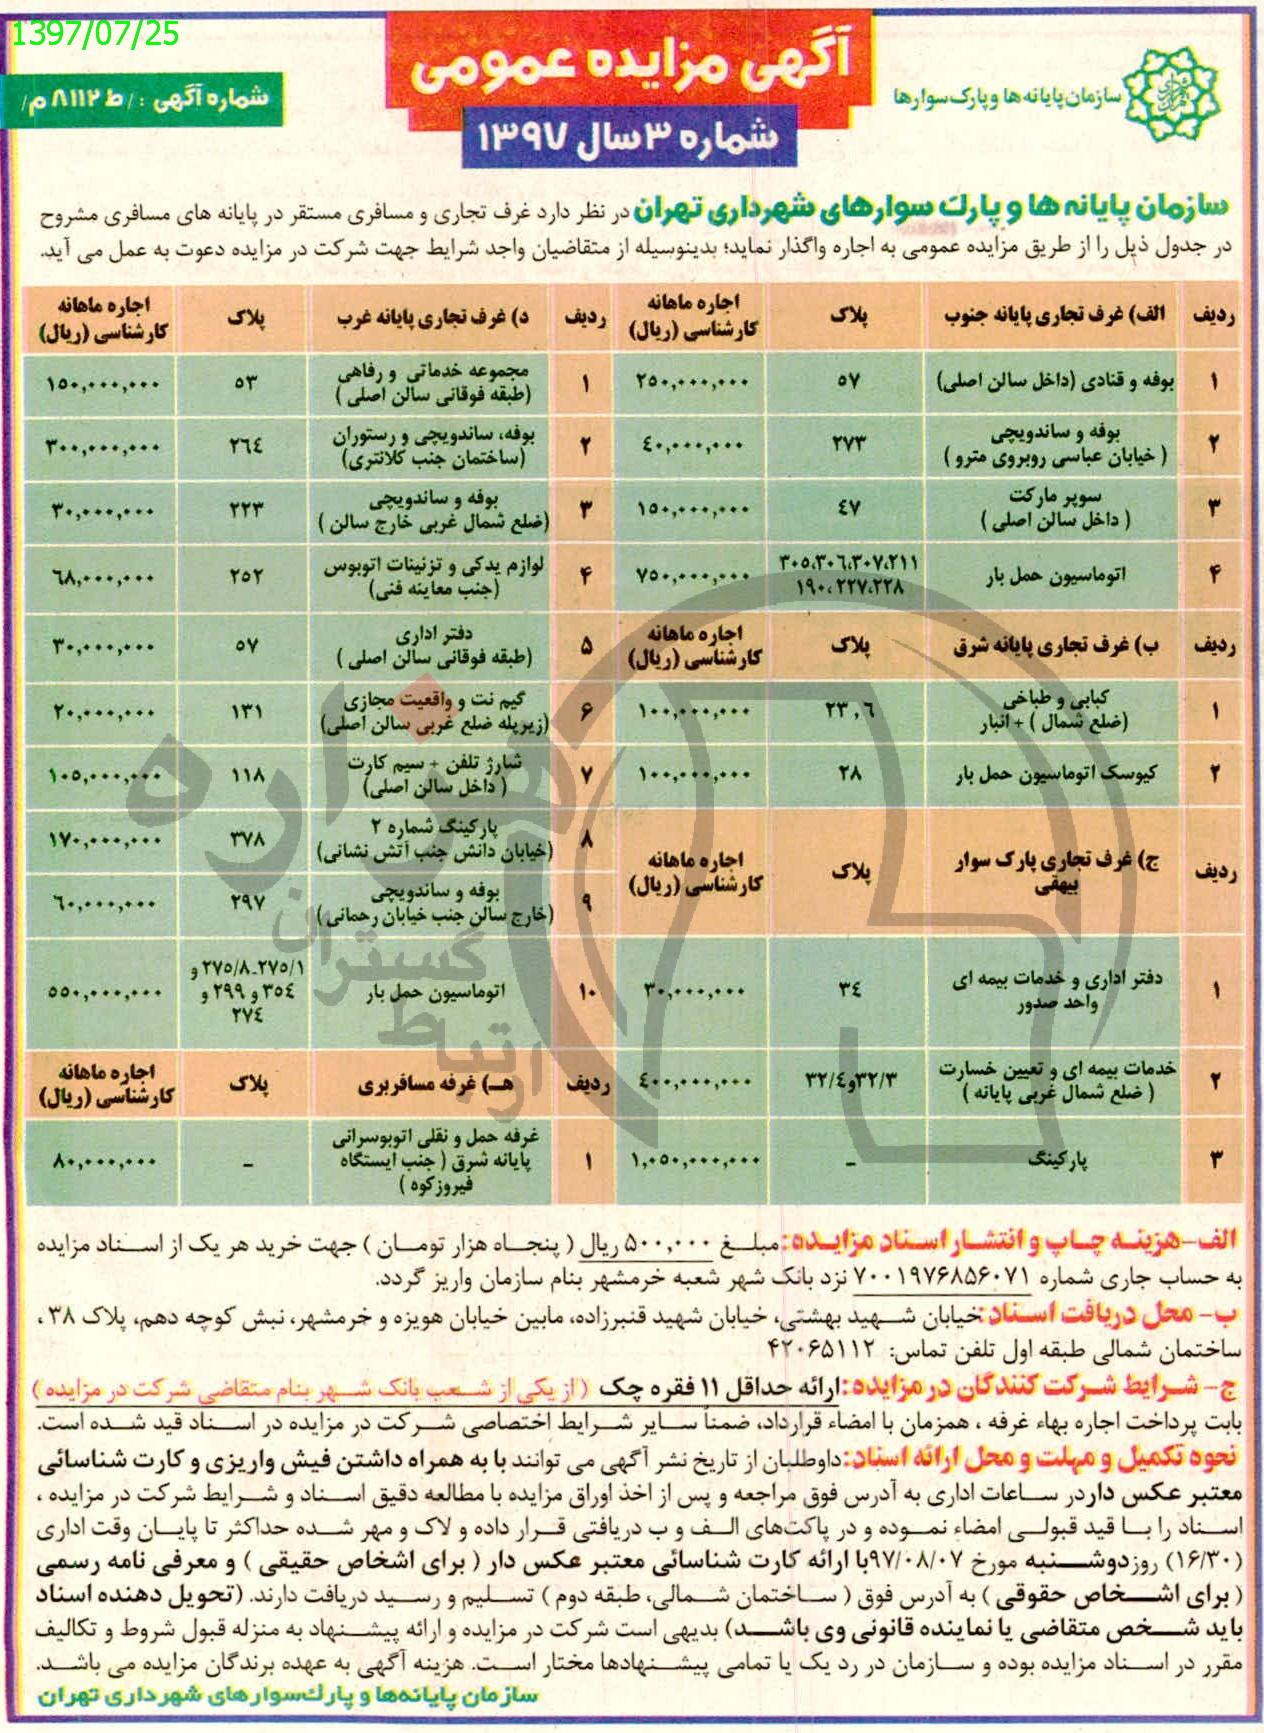 1397/07/25
آگهی مزایده عمومی
شماره ۳ سال ۱۳۹۷
سازمان پایانه ها و پارک سوارها
شماره آگهی : /ط ۸۱۱۲ م/
سازمان پایانه ها و پارک سوارهای شهرداری تهران در نظر دارد غرف تجاری و مسافری مستقر در پایانه های مسافری مشروح
در جدول ذیل را از طریق مزایده عمومی به اجاره واگذار نماید؛ بدینوسیله از متقاضیان واجد شرایط جهت شرکت در مزایده دعوت به عمل می آید.
ردیف الف) غرف تجاری پایانه جنوب پلاک اجاره ماهانه کارشناسی (ریال)
۱ بوفه و قنادی (داخل سالن اصلی) ۵۷ ۲۵۰,۰۰۰,۰۰۰
۲ بوفه و ساندویچی ( خیابان عباسی روبروی مترو ) ۲۷۳ ۴۰,۰۰۰,۰۰۰
۳ سوپر مارکت ( داخل سالن اصلی ) ۴۷ ۱۵۰,۰۰۰,۰۰۰
۴ اتوماسیون حمل بار ۳۰۵،۳۰۶،۳۰۷،۲۱۱ ۱۹۰،۲۲۷،۲۲۸ ۷۵۰,۰۰۰,۰۰۰
ردیف ب) غرف تجاری پایانه شرق پلاک اجاره ماهانه کارشناسی (ریال)
۱ کبابی و طباخی (ضلع شمال ) + انبار ۲۳,۶ ۱۰۰,۰۰۰,۰۰۰
۲ کیوسک اتوماسیون حمل بار ۲۸ ۱۰۰,۰۰۰,۰۰۰
ردیف ج) غرف تجاری پارک سوار بیهقی پلاک اجاره ماهانه کارشناسی (ریال)
۱ دفتر اداری و خدمات بیمه ای واحد صدور ۳۴ ۳۰,۰۰۰,۰۰۰
۲ خدمات بیمه ای و تعیین خسارت ( ضلع شمال غربی پایانه ) ۳۲/۳و۳۲/۴ ۴۰۰,۰۰۰,۰۰۰
۳ پارکینگ – ۱,۰۵۰,۰۰۰,۰۰۰
ردیف د) غرف تجاری پایانه غرب پلاک اجاره ماهانه کارشناسی (ریال)
۱ مجموعه خدماتی و رفاهی (طبقه فوقانی سالن اصلی ) ۵۳ ۱۵۰,۰۰۰,۰۰۰
۲ بوفه، ساندویچی و رستوران (ساختمان جنب کلانتری) ۲۶۴ ۳۰۰,۰۰۰,۰۰۰
۳ بوفه و ساندویچی (ضلع شمال غربی خارج سالن ) ۲۲۳ ۳۰,۰۰۰,۰۰۰
۴ لوازم یدکی و تزئینات اتوبوس (جنب معاینه فنی) ۲۵۲ ۶۸,۰۰۰,۰۰۰
۵ دفتر اداری (طبقه فوقانی سالن اصلی ) ۵۷ ۳۰,۰۰۰,۰۰۰
۶ گیم نت و واقعیت مجازی (زیرپله ضلع غربی سالن اصلی) ۱۳۱ ۲۰,۰۰۰,۰۰۰
۷ شارژ تلفن + سیم کارت ( داخل سالن اصلی) ۱۱۸ ۱۰۵,۰۰۰,۰۰۰
۸ پارکینگ شماره ۲ (خیابان دانش جنب آتش نشانی) ۳۷۸ ۱۷۰,۰۰۰,۰۰۰
۹ بوفه و ساندویچی (خارج سالن جنب خیابان رحمانی) ۲۹۷ ۶۰,۰۰۰,۰۰۰
۱۰ اتوماسیون حمل بار ۲۷۵/۱-۲۷۵/۸ و ۳۵۴ و ۲۹۹ و ۲۷۴ ۵۵۰,۰۰۰,۰۰۰
ردیف هـ) غرفه مسافربری پلاک اجاره ماهانه کارشناسی (ریال)
۱ غرفه حمل و نقلی اتوبوسرانی پایانه شرق ( جنب ایستگاه فیروزکوه ) – ۸۰,۰۰۰,۰۰۰
هزاره
ارتباط گستران
الف-هزینه چاپ و انتشار اسناد مزایده: مبلغ ۵۰۰,۰۰۰ ریال ( پنجاه هزار تومان ) جهت خرید هر یک از اسناد مزایده
به حساب جاری شماره ۷۰۰۱۹۷۶۸۵۶۰۷۱ نزد بانک شهر شعبه خرمشهر بنام سازمان واریز گردد.
ب- محل دریافت اسناد: خیابان شهید بهشتی، خیابان شهید قنبرزاده، مابین خیابان هویزه و خرمشهر، نبش کوچه دهم، پلاک ۳۸ ،
ساختمان شمالی طبقه اول تلفن تماس: ۴۲۰۶۵۱۱۲
ج- شرایط شرکت کنندگان در مزایده: ارائه حداقل ۱۱ فقره چک ( از یکی از شعب بانک شهر بنام متقاضی شرکت در مزایده )
بابت پرداخت اجاره بهاء غرفه ، همزمان با امضاء قرارداد، ضمناً سایر شرایط اختصاصی شرکت در مزایده در اسناد قید شده است.
نحوه تکمیل و مهلت و محل ارائه اسناد: داوطلبان از تاریخ نشر آگهی می توانند با به همراه داشتن فیش واریزی و کارت شناسائی
معتبر عکس دار در ساعات اداری به آدرس فوق مراجعه و پس از اخذ اوراق مزایده با مطالعه دقیق اسناد و شرایط شرکت در مزایده ،
اسناد را با قید قبولی امضاء نموده و در پاکت‌های الف و ب دریافتی قرار داده و لاک و مهر شده حداکثر تا پایان وقت اداری
(۱۶/۳۰) روز دوشنبه مورخ ۹۷/۰۸/۰۷ با ارائه کارت شناسائی معتبر عکس دار ( برای اشخاص حقیقی ) و معرفی نامه رسمی
( برای اشخاص حقوقی ) به آدرس فوق ( ساختمان شمالی، طبقه دوم ) تسلیم و رسید دریافت دارند. (تحویل دهنده اسناد
باید شخص متقاضی یا نماینده قانونی وی باشد) بدیهی است شرکت در مزایده و ارائه پیشنهاد به منزله قبول شروط و تکالیف
مقرر در اسناد مزایده بوده و سازمان در رد یک یا تمامی پیشنهادها مختار است. هزینه آگهی به عهده برندگان مزایده می باشد.
سازمان پایانه‌ها و پارک‌سوارهای شهرداری تهران